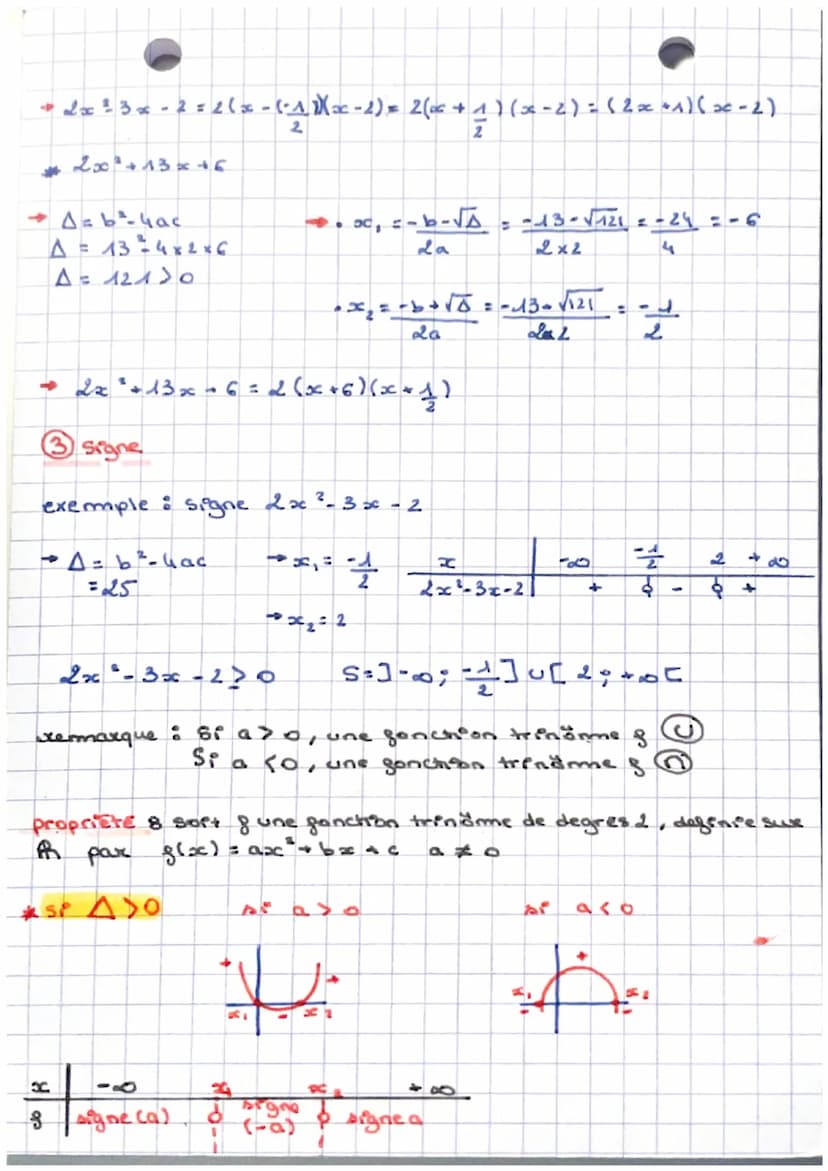 → 2x²-3x-2 = 2(x-(-1/2))(x-2) = 2(x+1/2)(x-2) = (2x+1)(x-2)
* 2x²+13x+6
→ Δ = b²-4ac
Δ = 13²-4×2×6
Δ = 121>0
→ • x₁ = -b-√Δ/2a = -13-√121/2×2 = -24/4 = -6
• x₂ = -b+√Δ/2a = -13+√121/2×2 = -1/2
→ 2x²+13x+6 = 2(x+6)(x+1/2)
③ signe
exemple : signe 2x²-3x-2
→ Δ = b²-4ac
= 25
→ x₁ = -1/2
→ x₂ = 2
x | -∞ -1/2 2 +∞
2x²-3x-2 | + 0 - 0 +
2x²-3x-2 ≥ 0 S=]-∞; -1/2] ∪ [2; +∞[
remarque : Si a>0, une fonction trinôme f ∪
Si a <0, une fonction trinôme f ∩
propriété : soit f une fonction trinôme de degres 2, definie sur
ℝ par f(x) = ax²+bx+c a ≠ 0
* si Δ>0 si a>0 si a<0
+ + x₁ - x₂
+ x₁ x₂ - -
x | -∞ x₁ x₂ +∞
f | signe(a) 0 signe (-a) 0 signe a